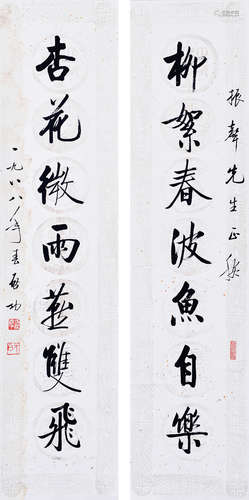 振声先生正腕
柳絮春波魚自樂
杏花微雨燕雙飛
一九八八年春启功